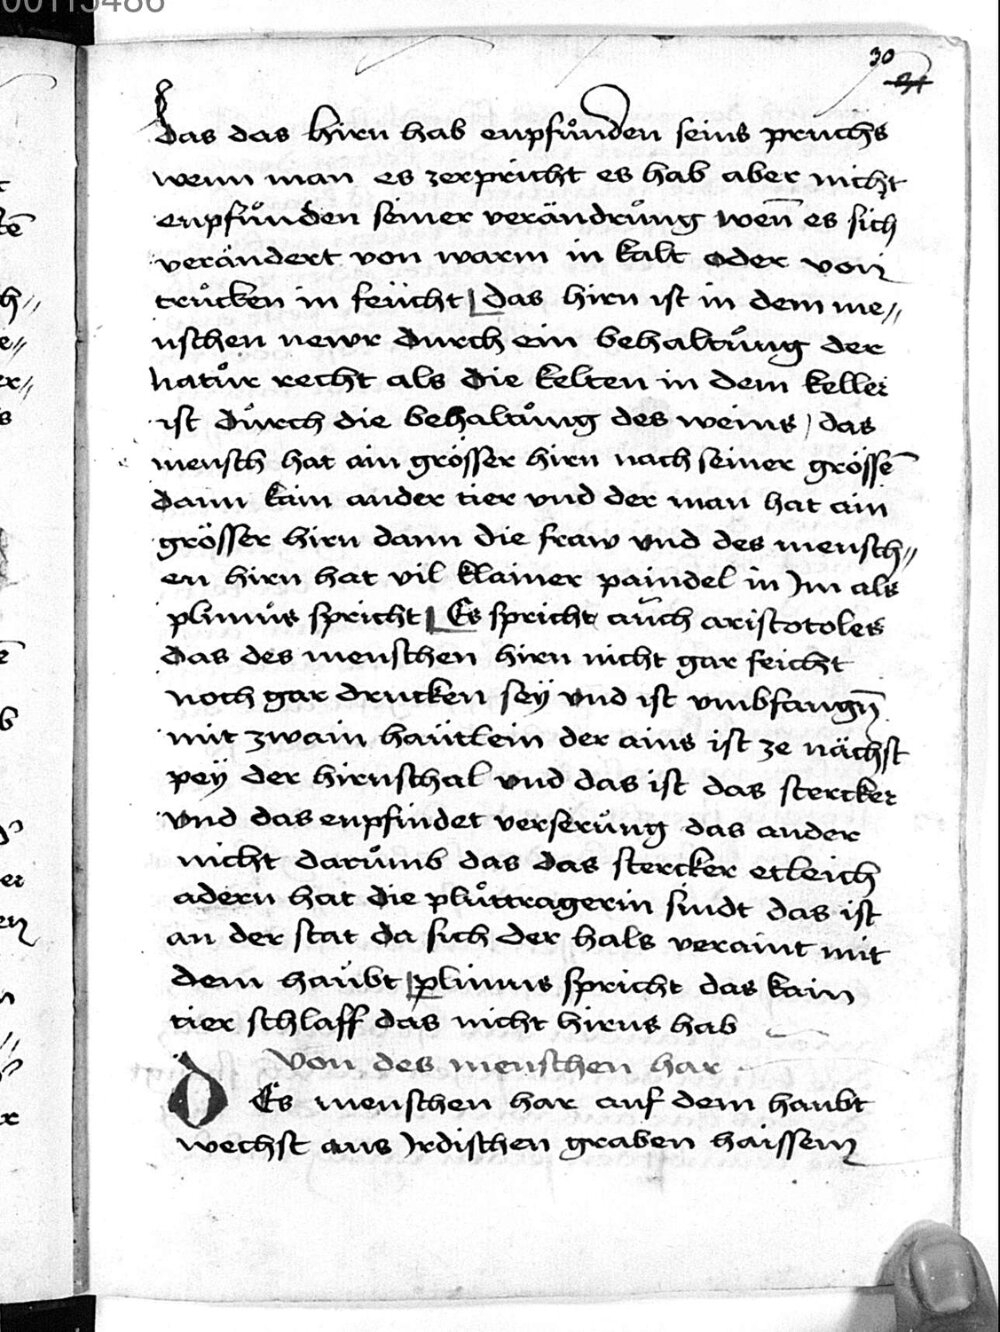 00115486
30
31
das das hirn hab enpfůnden seins pruchs
wenn man es zerpricht es hab aber nicht
enpfůnden seiner verändrůng weñ es sich
verändert von warm in kalt oder von
trůcken in feücht das hirn ist in dem me〃
nschen newr durch ein behaltůng der
natůr recht als die kelten in dem keller
ist důrch die behaltůng des weins / das
mensch hat ain grösser hirn nach seiner grösse
dann kain ander tier vnd der man hat ain
grösser hirn dann die fraw vnd des mensch〃
en hirn hat vil klainer paindel in Jm als
plinius spricht Es spricht auch aristotoles
das des menschen hirn nicht gar feicht
noch gar drucken seÿ vnd ist vmbfangñ
mit zwain haütlein der ains ist ze nächst
peÿ der hirnschal vnd das ist das stercker
vnd das enpfindet verserůng das ander
nicht darůmb das das stercker etleich
adern hat die plůttragerin sindt das ist
an der stat da sich der hals veraint mit
dem haubt plinius spricht das kain
tier schlaff das nicht hirns hab
Von des menschen har
DEs menschen har auf dem haubt
wechst aus Jrdischen graben haissen